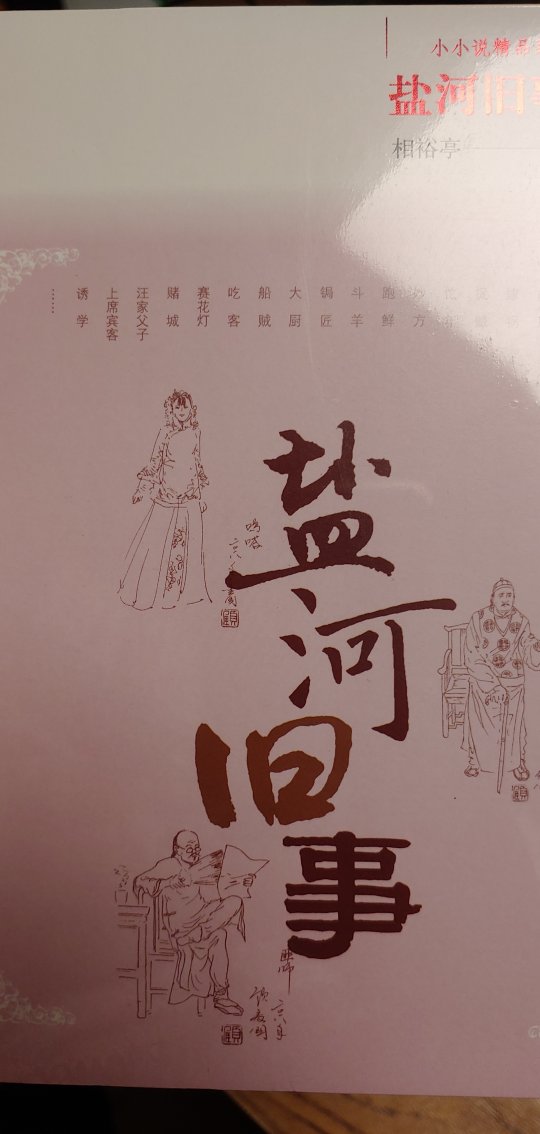 小小说精品
盐河旧事
相裕亭
跑鲜
斗羊
锔匠
大厨
船贼
吃客
赛花灯
赌城
汪家父子
上席宾客
诱学
……
盐河旧事